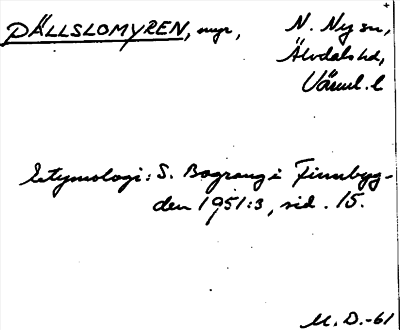 DÄLLSLOMYREN, myr, N. Ny sn,
Älvdals hd,
Värml. l
Etymologi: S. Bograng i Finnbyg-
den 1951:3, sid. 15.
M. D.-61